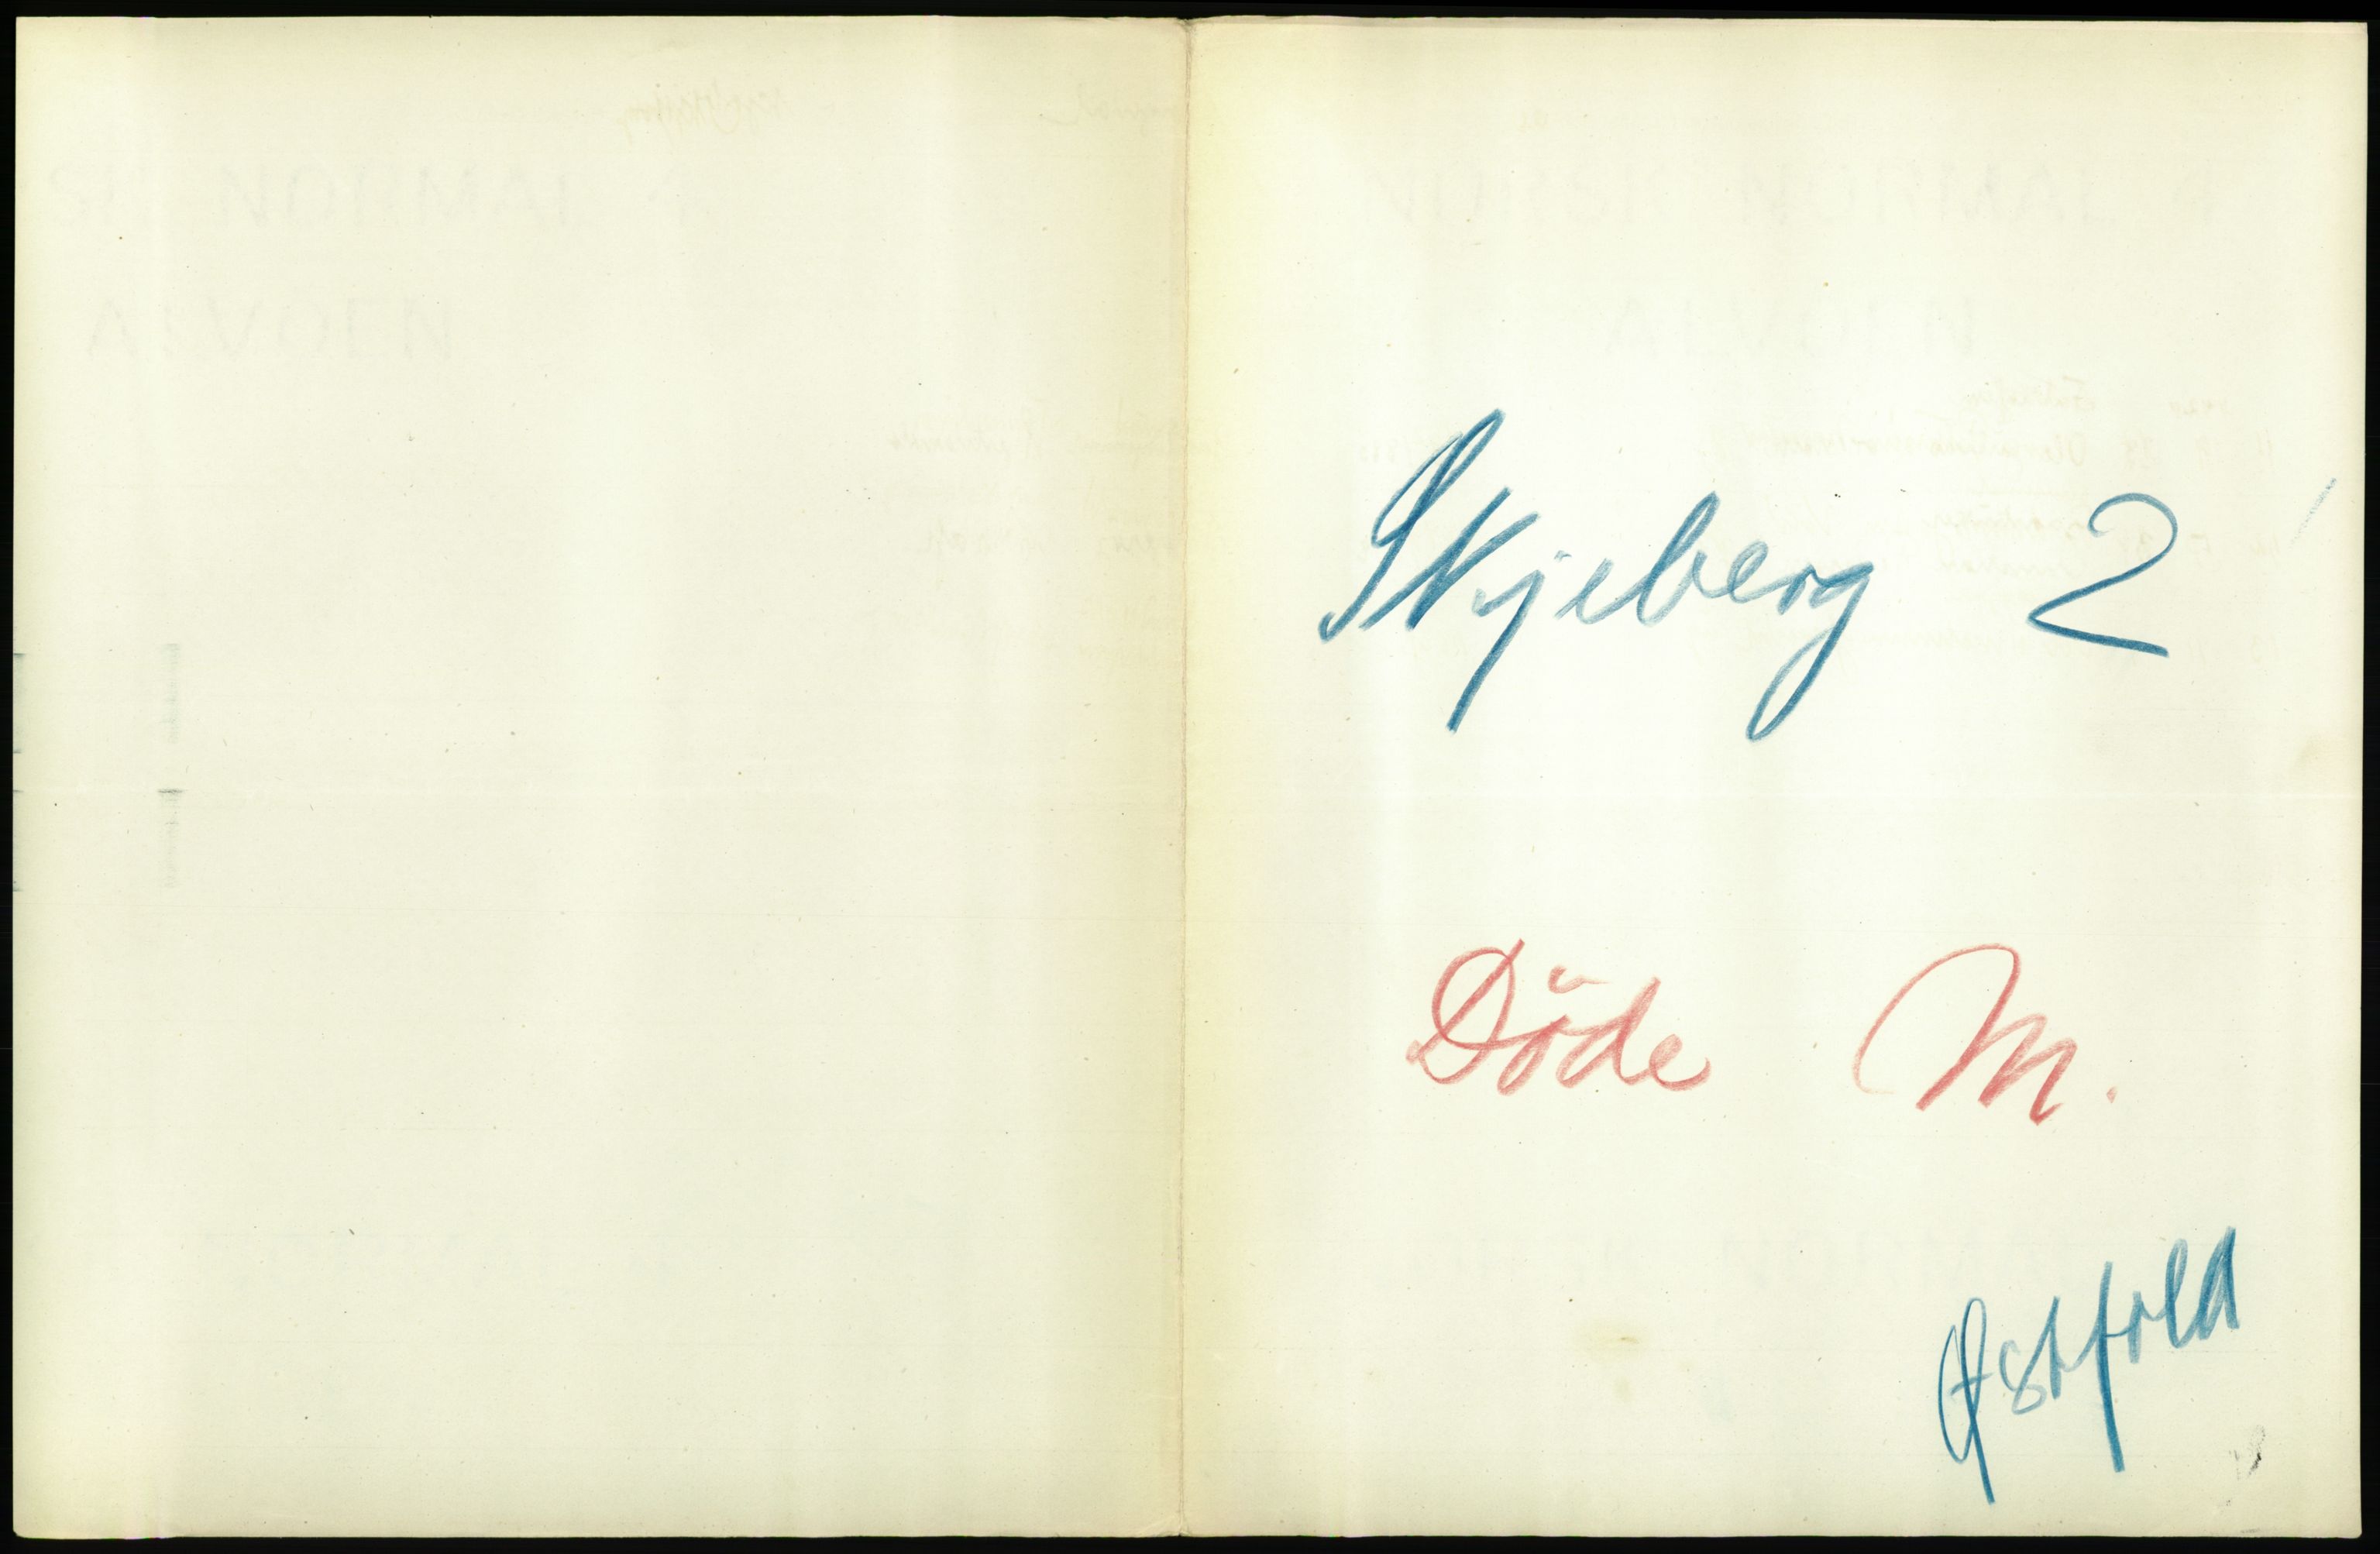 Skjeberg 2
Döde M.
Østfold